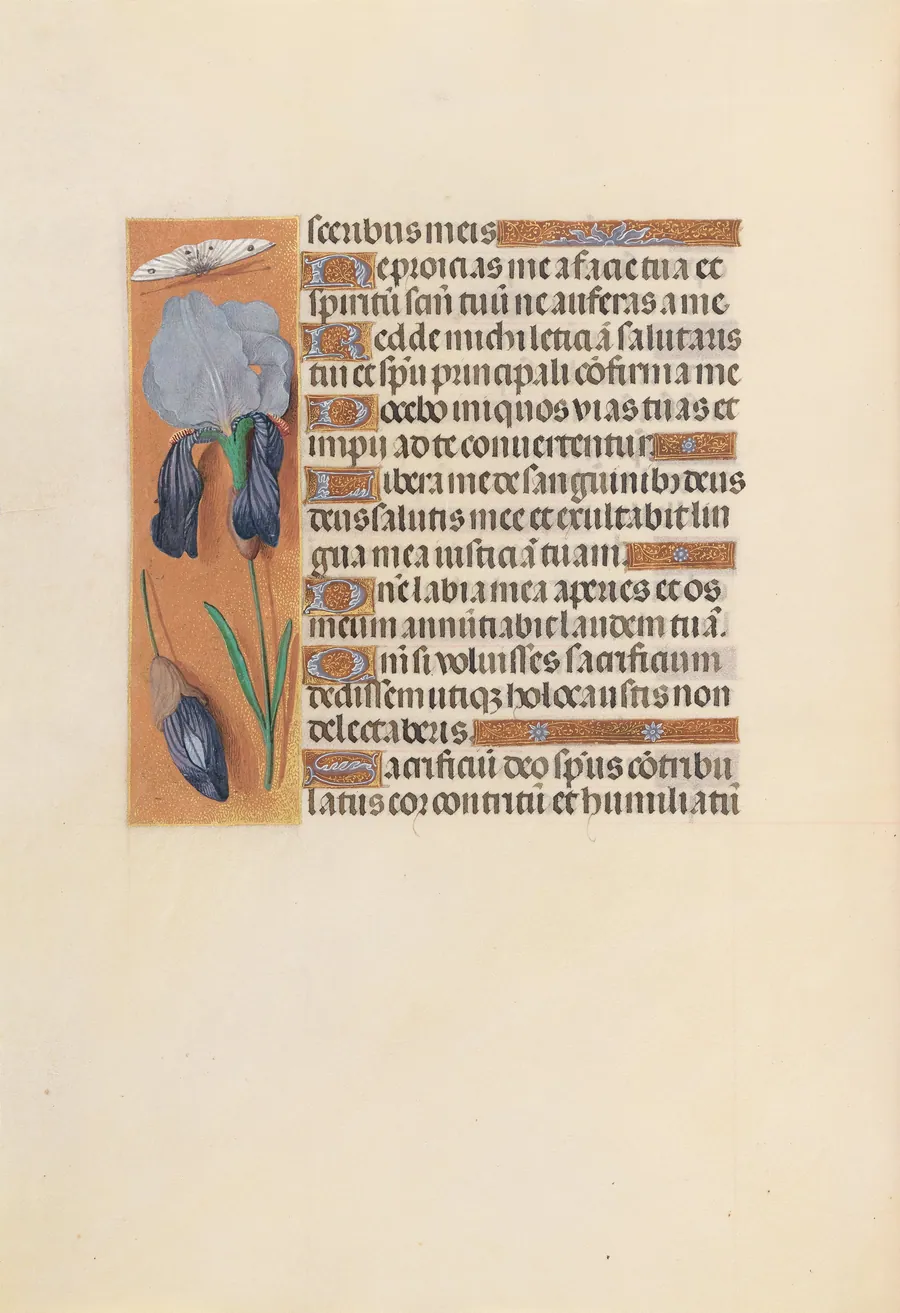 sceribus meis
Ne proicias me a facie tua et
spiritū scm̄ tuū ne auferas a me
Redde michi leticiā salutaris
tui et spū principali cōfirma me
Docebo iniquos vias tuas et
impij ad te conuertentur.
Libera me de sanguinibꝫ deus
deus salutis mee et exultabit lin
gua mea iusticiā tuam.
Dn̄e labia mea aperies et os
meum annūtiabit laudem tuā.
Qm̄ si voluisses sacrificium
dedissem utiqꝫ holocaustis non
delectaberis.
Sacrificiū deo sp̄us cōtribu
latus cor contritū et humiliatū